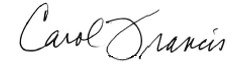 Carol Francis